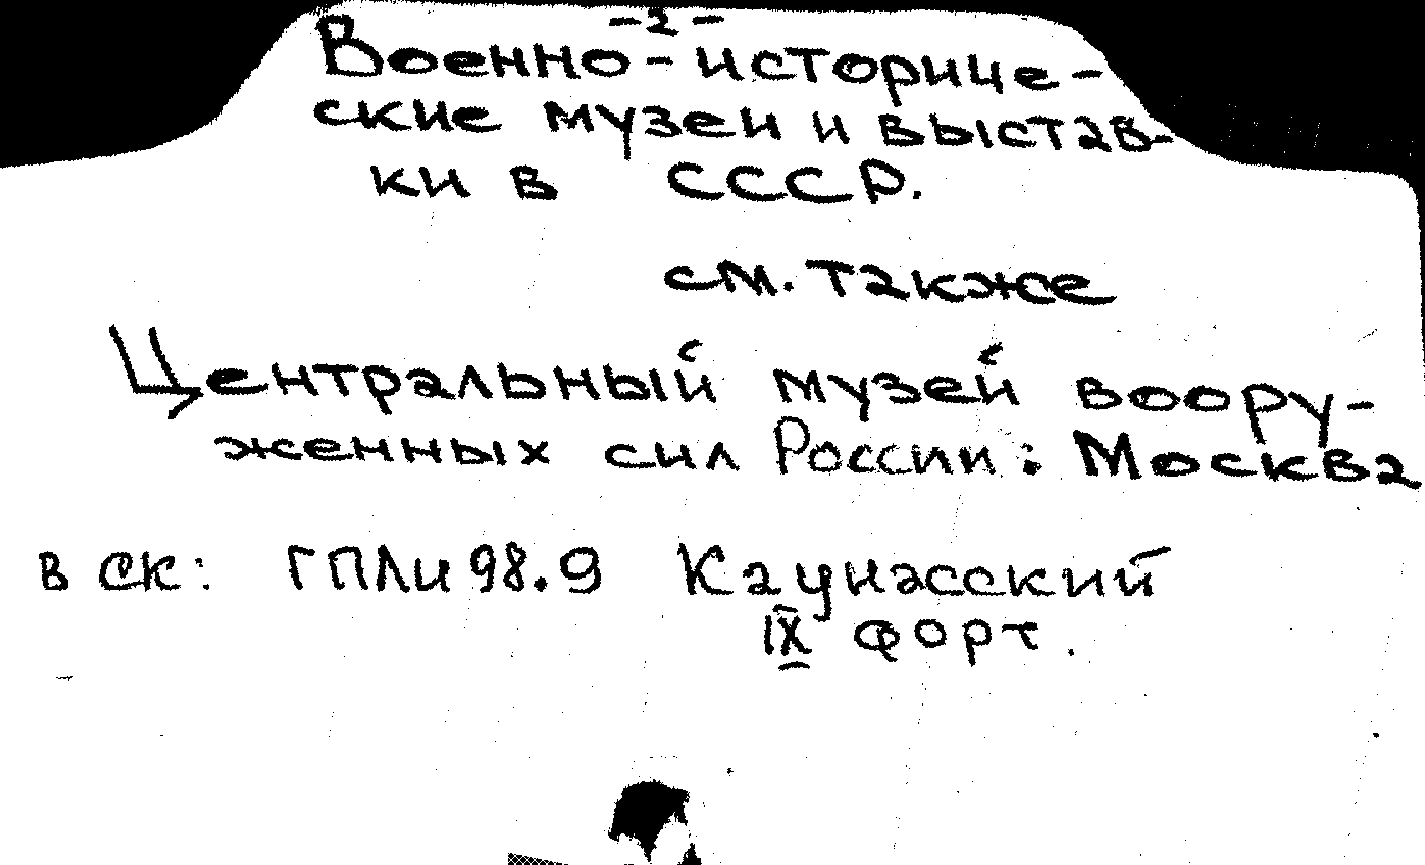 -2-
Военно-историче-
ские музеи и выстав-
ки в СССР.
см. также
Центральный музей воору-
женных сил России: Москва
в СК: ГПЛи 98.9 Каунасский
IX форт.